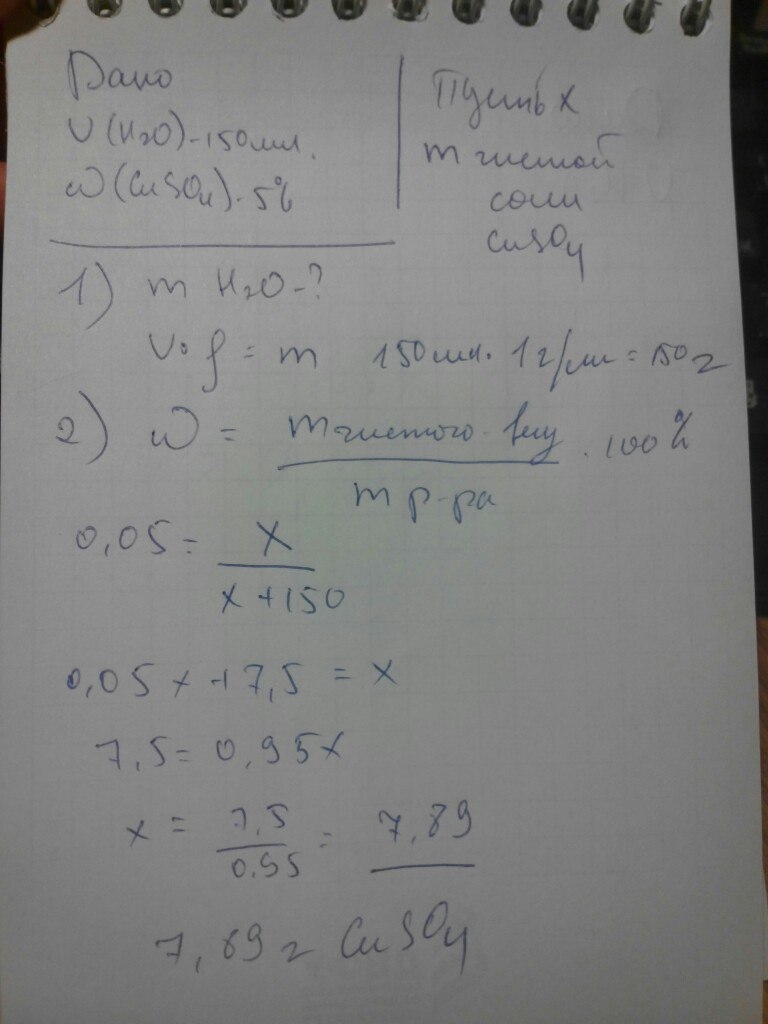 Дано
V(H₂O)-150мл.
ω(CuSO₄)-5%
Пусть x
m чистой
соли
CuSO₄
1) m H₂O-?
V·ρ = m 150мл. 1г/мл = 150г
2) ω = m чистого вещ / m р-ра · 100%
0,05 = x / x+150
0,05x+7,5 = x
7,5 = 0,95x
x = 7,5 / 0,95 = 7,89
7,89 г CuSO₄